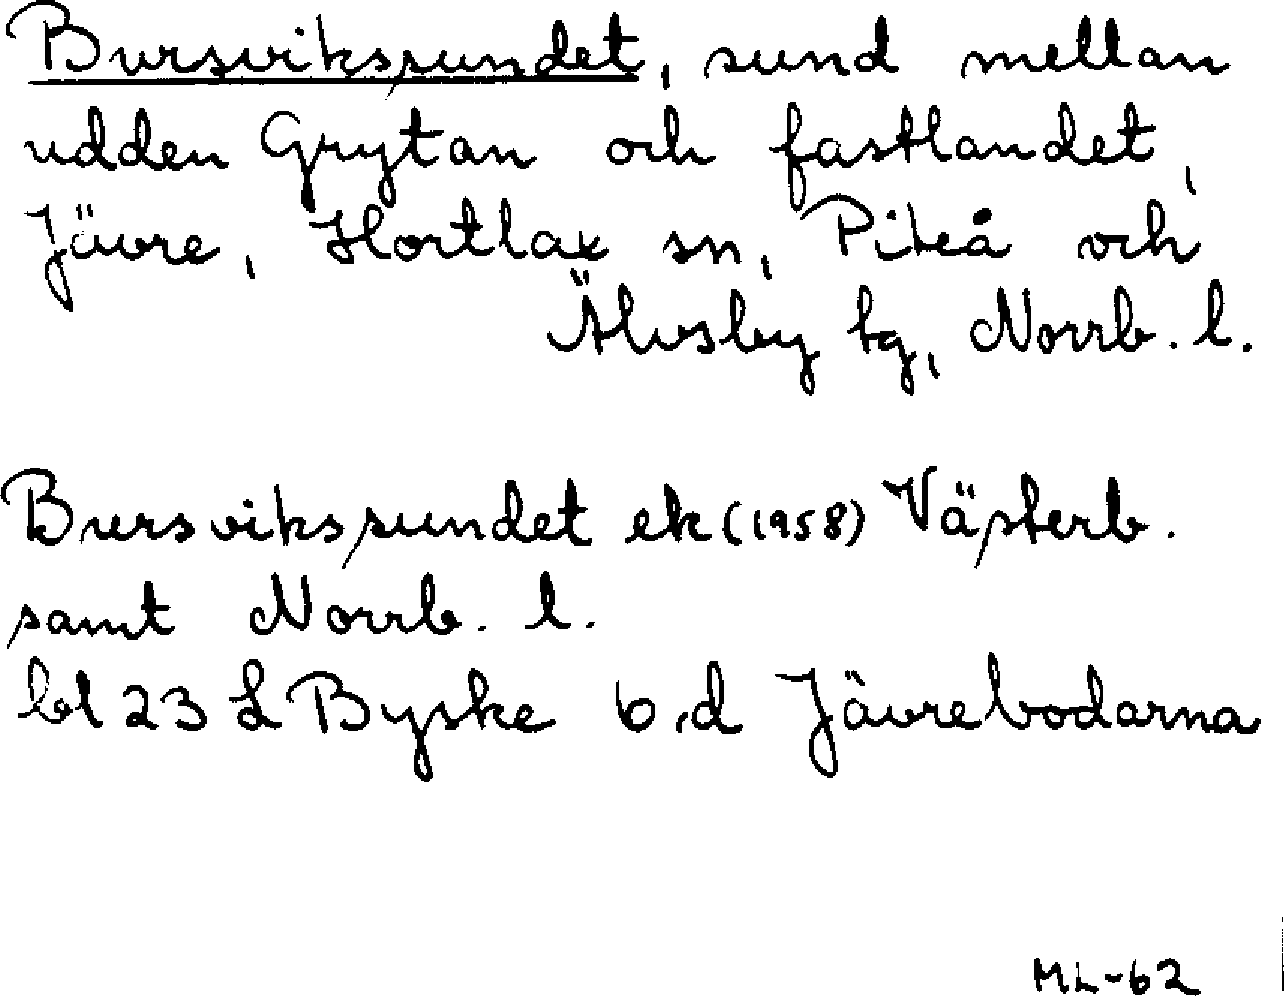 Bursvikssundet, sund mellan
udden Grytan och fastlandet,
Jävre, Hortlax sn, Piteå och
Älvsby tg, Norrb. l.
Bursvikssundet ek (1958) Västerb.
samt Norrb. l.
bl 23 L Byske b,d Jävrebodarna
ML-62